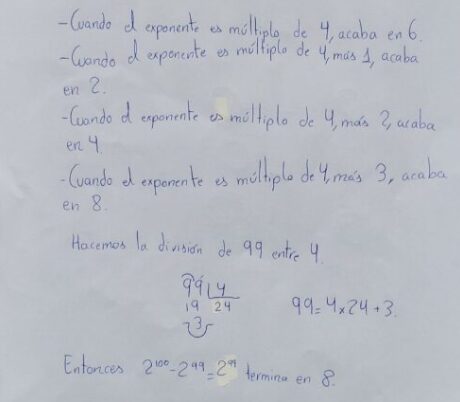 -Cuando el exponente es múltiplo de 4, acaba en 6.
-Cuando el exponente es múltiplo de 4, más 1, acaba
en 2.
-Cuando el exponente es múltiplo de 4, más 2, acaba
en 4.
-Cuando el exponente es múltiplo de 4, más 3, acaba
en 8.
Hacemos la división de 99 entre 4.
99 4
19 24
3
99 = 4 x 24 + 3.
Entonces 2¹⁰⁰ - 2⁹⁹ = 2⁹⁹ termina en 8.